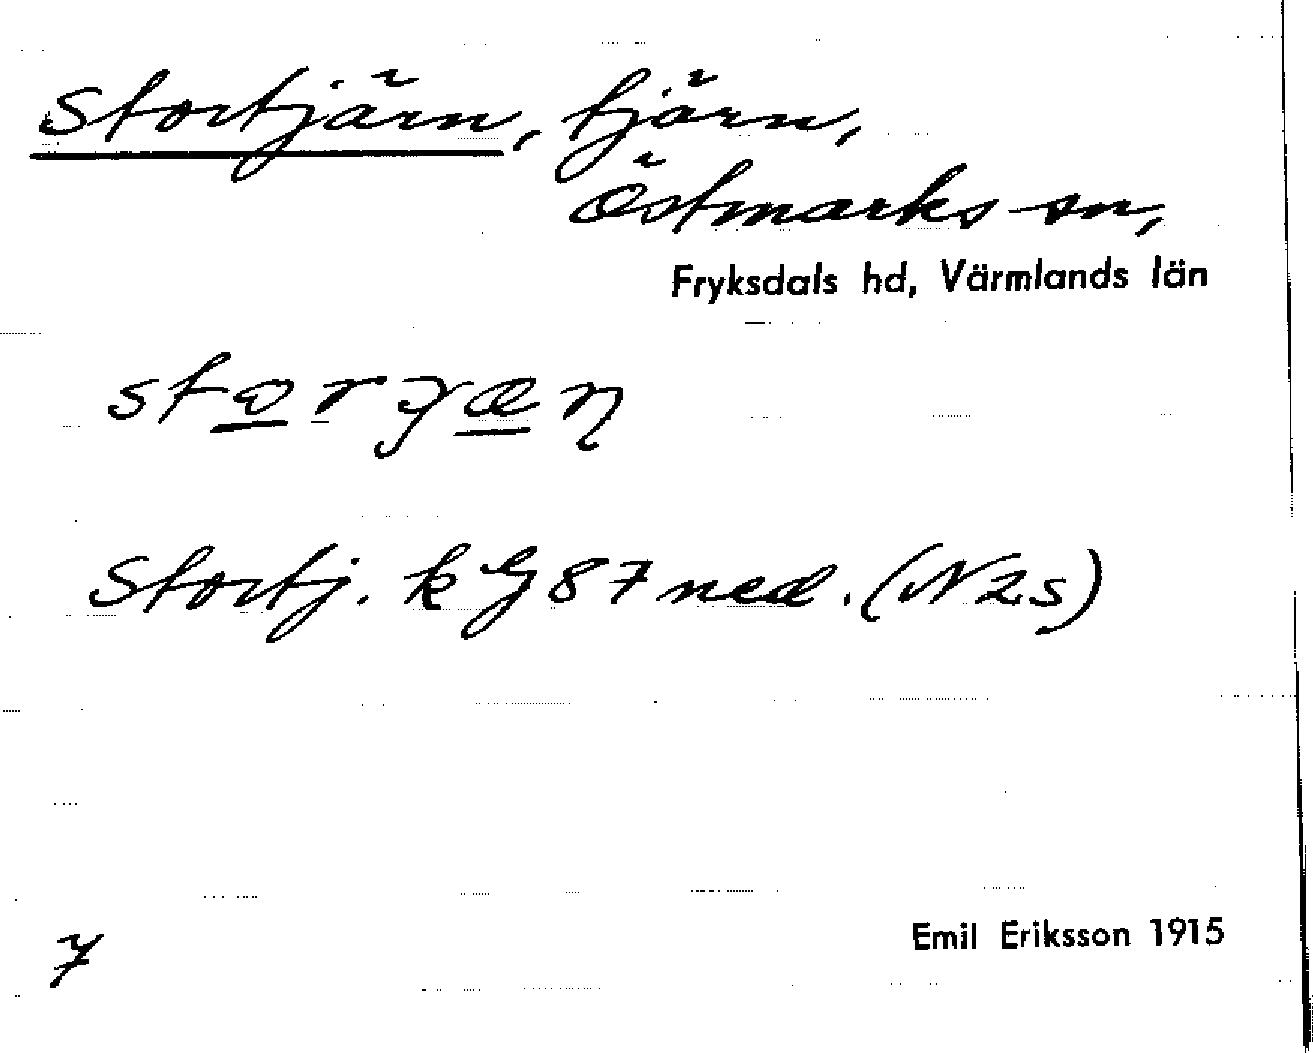 Stortjärn, tjärn,
Östmarks sn,
Fryksdals hd, Värmlands län
Stortj. k G 87 ned. (N2s)
7
Emil Eriksson 1915